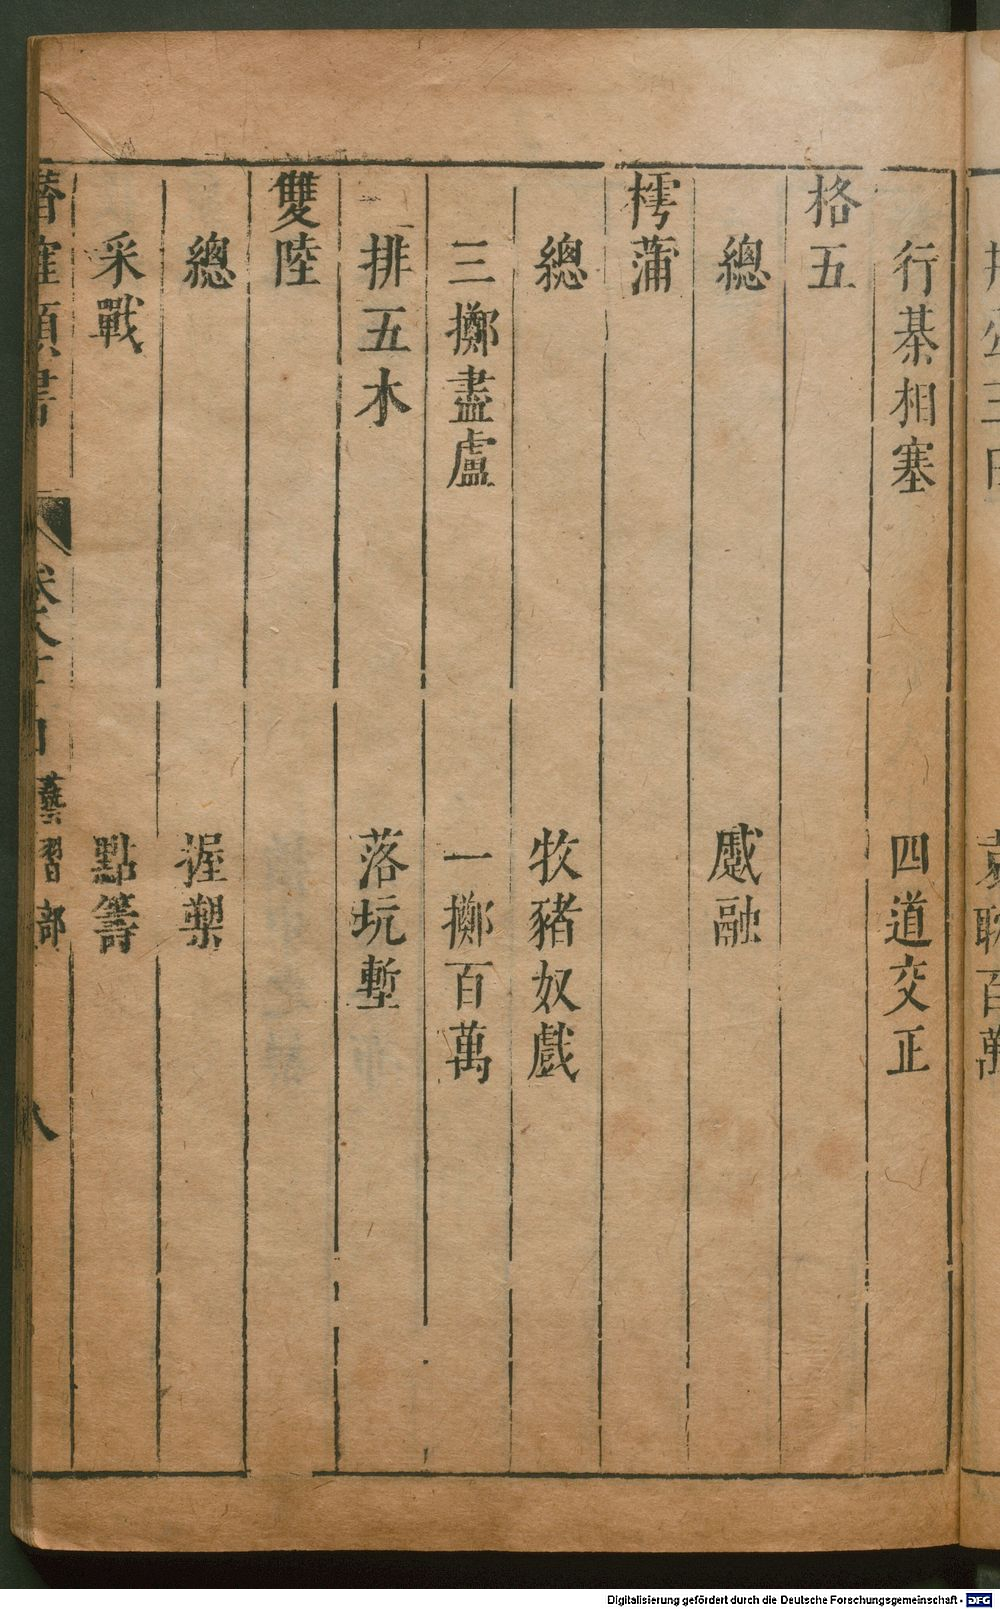 行棊相塞　四道交正
格五
總　蹙融
樗蒲
總　牧豬奴戲
三擲盡盧　一擲百萬
排五木　落坑塹
雙陸
總　握槊
采戰　點籌
潛確類書　卷八十　藝習部　八
Digitalisierung gefördert durch die Deutsche Forschungsgemeinschaft - DFG